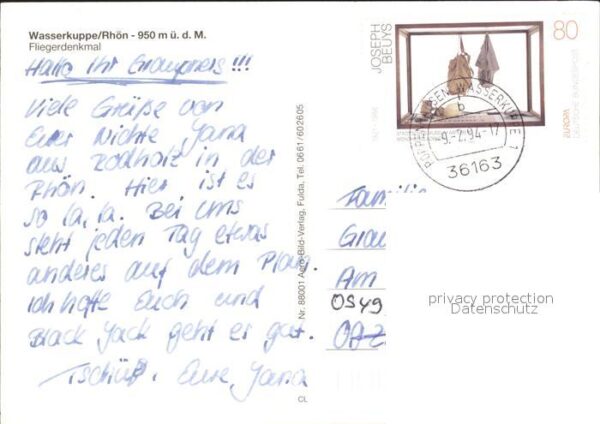 Wasserkuppe/Rhön - 950 m ü. d. M.
Fliegerdenkmal
Hallo Ihr Graupners!!!
Viele Grüße von
Eurer Nichte Jana
aus Rodholz in der
Rhön. Hier ist es
so la, la. Bei uns
steht jeden Tag etwas
anderes auf dem Plan.
Ich hoffe Euch und
Black Jack geht es gut.
Tschüß, Eure Jana
Nr. 88001 Aero-Bild-Verlag, Fulda, Tel. 0661/602605
CL
JOSEPH
BEUYS
80
EUROPA
DEUTSCHE BUNDESPOST
WASSERKUPPE 1
b
-9.-2.94-17
36163
Familie
Grau
Am
privacy protection
Datenschutz